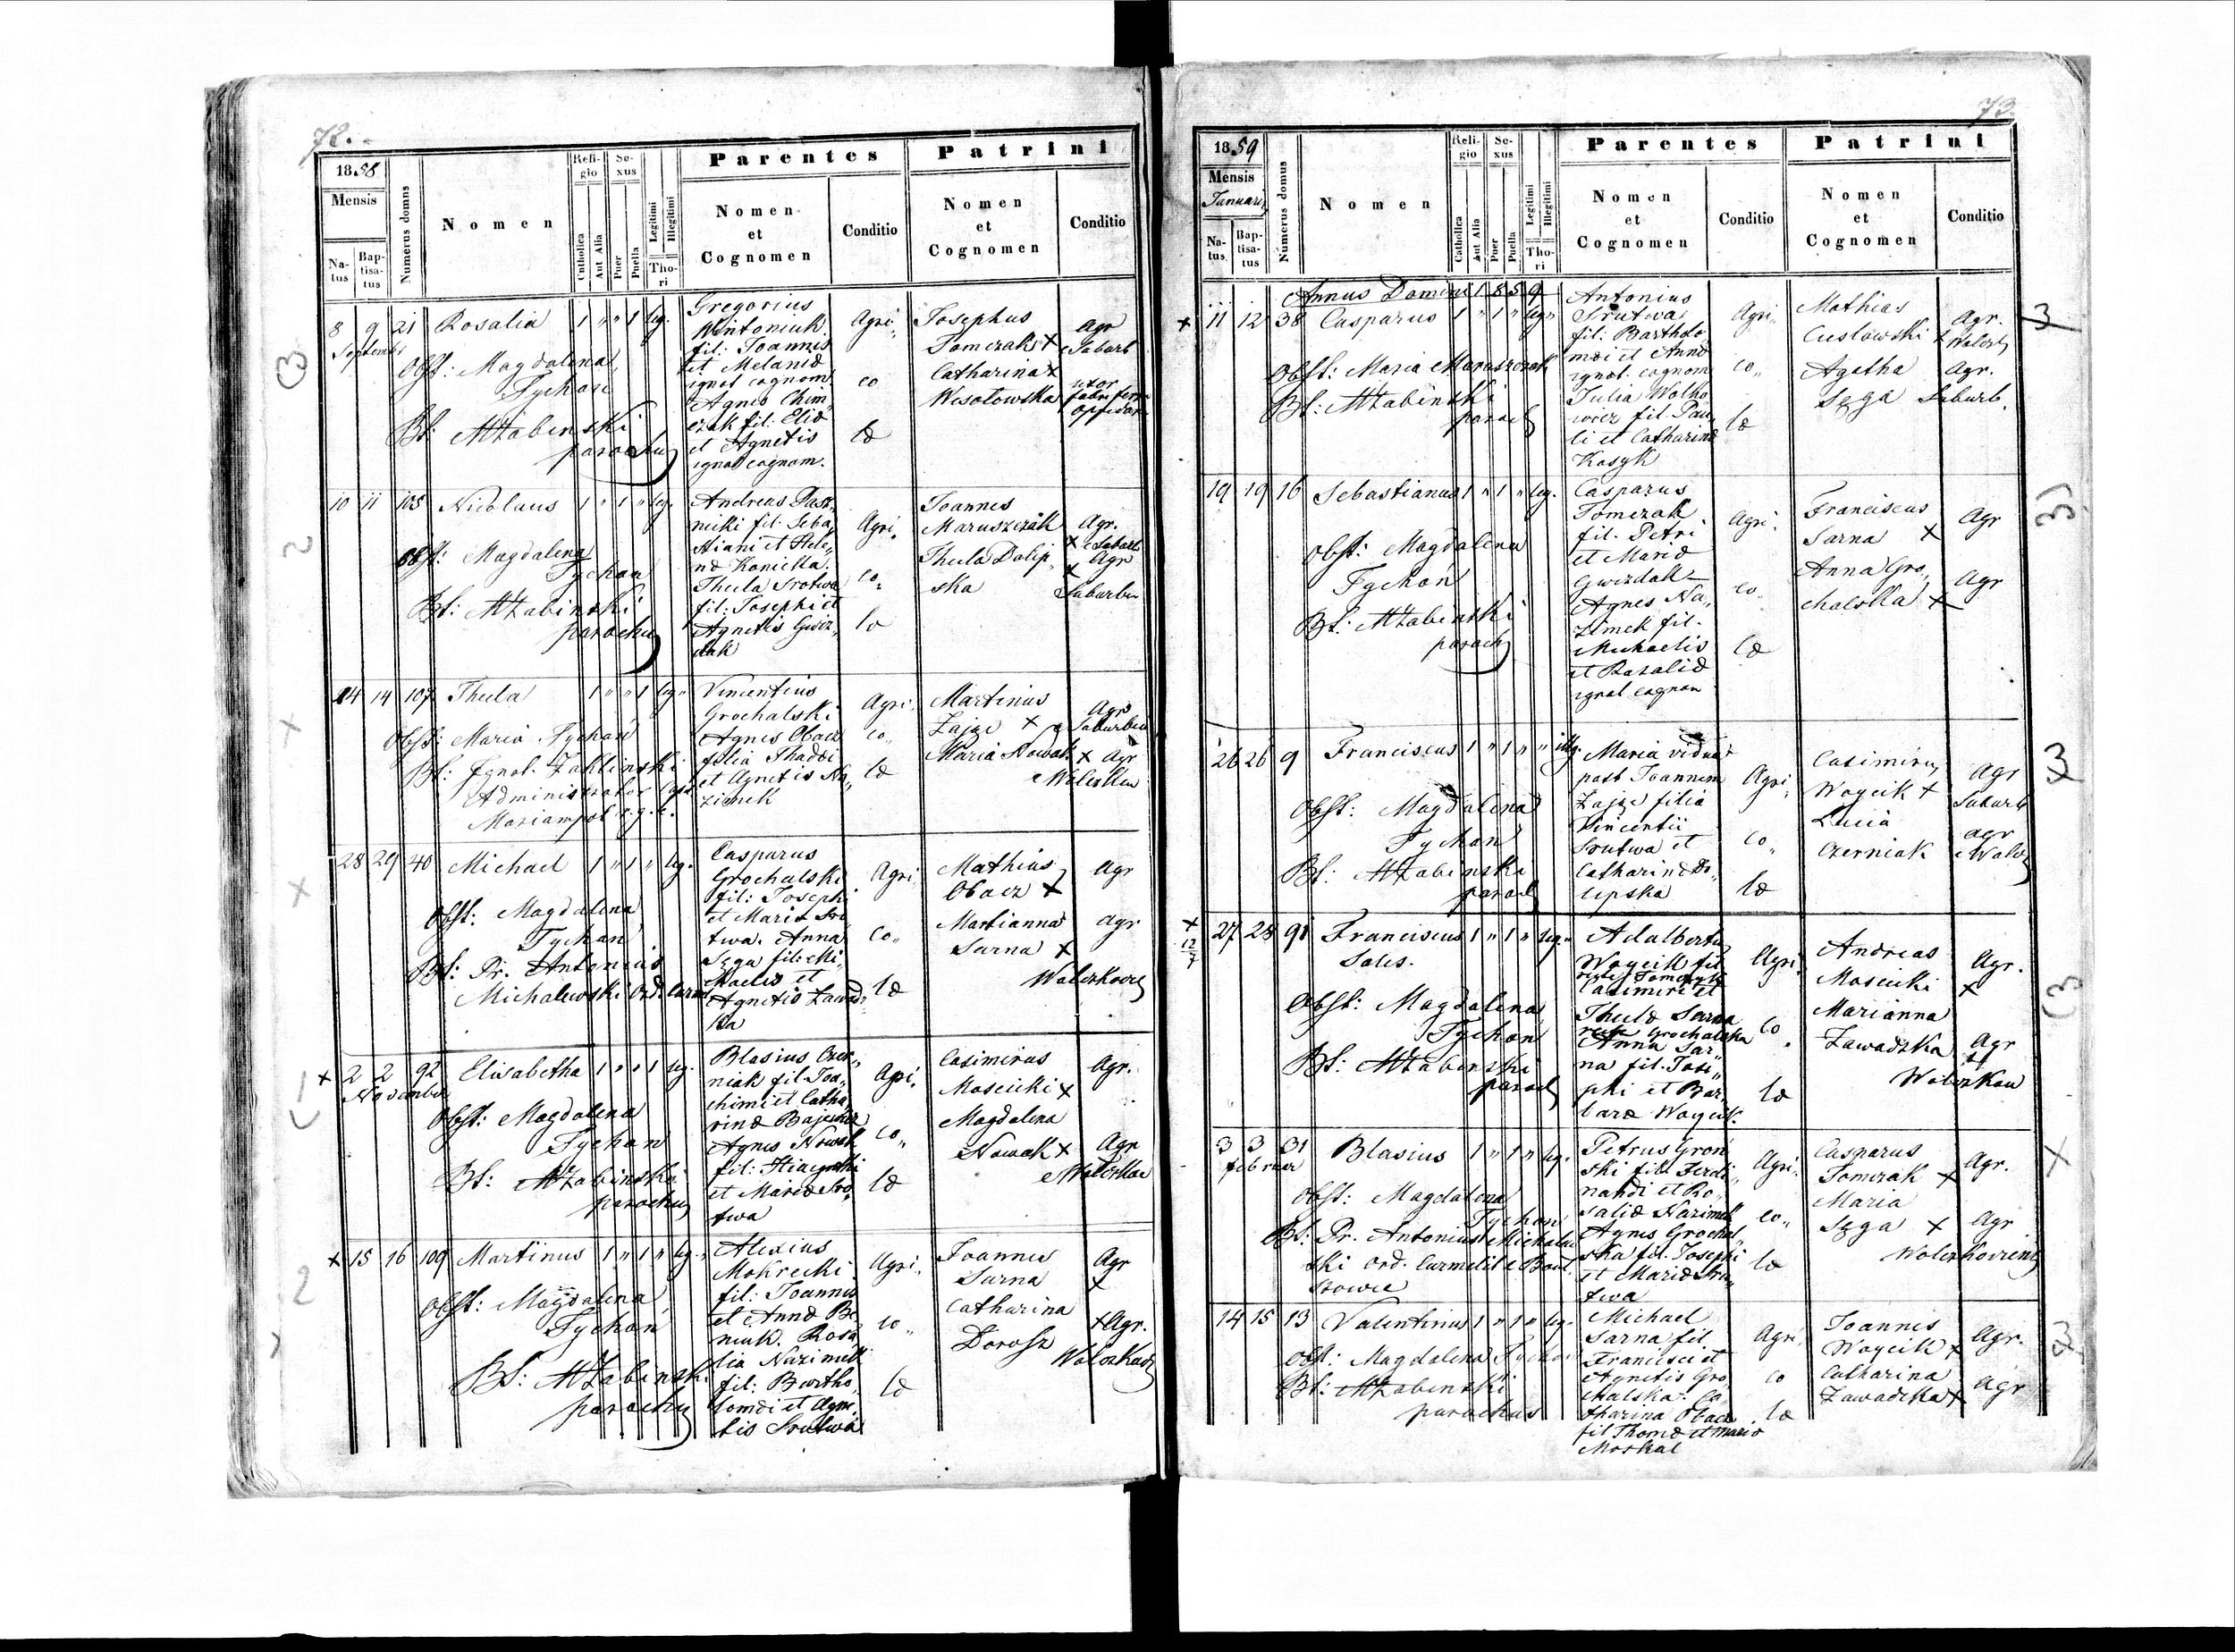 72.
1858
Mensis
Natus
Baptisatus
Numerus domus
Nomen
Religio
Catholica
Aut Alia
Sexus
Puer
Puella
Legitimi
Illegitimi
Thori
Parentes
Nomen et Cognomen
Conditio
Patrini
Nomen et Cognomen
Conditio
8 9 21 Rosalia 1 " " 1 leg.
Septembr
Obst: Magdalena
Tychan
Bt: MŻabinski
parochus
Gregorius
Wintoniuk
fil: Joannis
et Melaniæ
ignot cognom.
Agnes Chim,
czak fil: Eliæ
et Agnetis
ignot cognom.
Agri,
co
læ
Josephus
Tomczak +
Catharina +
Wesołowska
Agr
Suburb
uxor
fabri ferr
oppidan
10 11 105 Nicolaus 1 " 1 " leg.
Obst: Magdalena
Tychan
Bt: MŻabinski
parochus
Andreas Past,
nicki fil: Seba,
stiani et Hele,
næ Konicka.
Thecla Srotwa
fil: Josephi et
Agnetis Gwiz,
dak
Agri,
co,
læ
Joannes
Maruszczak
Thecla Dolip,
ska
Agr.
+ Suburb
Agr
+
Suburben
14 14 107 Thecla 1 " " 1 leg"
Obst: Maria Tychan
Bt: Ignat. Zahlinski
Administrator
Mariampol r.g.c.
Vincentius
Grochalski
Agnes Obacz
filia Thaddei
et Agnetis Na,
zimek
Agri,
co,,
læ
Martinus
Zając +
Maria Nowak
Agr
Suburben
+ Agr
28 29 40 Michael 1 " 1 " leg.
Obst: Magdalena
Tychan
Bt: Pr. Antonius
Michalewski Ord. Carm
Casparus
Grochalski
fil: Josephi
et Maria Sro
twa. Anna
Sęga fil: Mi,
chaelis et
Agnetis Zawadz
ka
Agri
co,,
læ
Mathias
Obacz +
Marianna
Sarna +
Agr
agr
+ 2 2 92 Elisabetha 1 " " 1 leg.
November
Obst: Magdalena
Tychan
Bt: MŻabinski
parochus
Blasius Czer,,
niak fil: Joa,
chimi et Catha
rinæ
Agnes Nowak
fil:
et Mariæ Sro,
twa
Agri,
co,,
læ
Casimirus
Moscicki +
Magdalena
Nowak +
Agr.
Agr
+ 15 16 109 Martinus 1 " 1 " leg.,
Obst: Magdalena
Tychan
Bt: MŻabinski
parochus
Alexius
Mokrecki
fil: Joannis
et Annæ Be
niuk. Rosa,
lia Nazimek
fil: Bartho,
lomæi et Agne,
tis Srutwa
Agri,
co,,
læ
Joannes
Sarna
Catharina
Dorosz
Agr
+
+ Agr.
73
1859
Mensis
Januarij
Natus
Baptisatus
Numerus domus
Nomen
Religio
Catholica
Aut Alia
Sexus
Puer
Puella
Legitimi
Illegitimi
Thori
Parentes
Nomen et Cognomen
Conditio
Patrini
Nomen et Cognomen
Conditio
Annus Domini 1859
+ 11 12 38 Casparus 1 " 1 " leg"
Obst: Maria Maruszczak
Bt: MŻabinski
paroch
Antonius
Srutwa
fil: Bartholo
mæi et Annæ
ignot. cognom
Julia Wołho
wicz fil: Pau,
li et Catharinæ
Kosyk
Agri,,
co,,
læ
Mathias
Agatha
Sęga
Agr.
Agr.
Suburb.
3
19 19 16 Sebastianus 1 " 1 " leg.
Obst: Magdalena
Tychan
Bt: MŻabinski
paroch
Casparus
Tomczak
fil: Petri
et Mariæ
Gwizdak
Agnes Na,,
zimek fil.
Michaelis
et Rosaliæ
ignot cognom
Agri,
co,
læ
Franciscus
Sarna +
Anna Gro,,
chalska +
Agr
Agr
3)
26 26 9 Franciscus 1 " 1 " " illeg.
Obst: Magdalena
Tychan
Bt: MŻabinski
paroch
Maria vidua
post Joannem
Zając filia
Vincentii
Srutwa et
Catharinæ Do,
lipska
Agri,
co,,
læ
Casimirus
Woycik +
Lucia
Czerniak
Agr
Suburb
agr
3
+ 12/7 27 28 91 Franciscus 1 " 1 " leg"
Sales.
Obst: Magdalena
Tychan
Bt: MŻabinski
paroch
Adalbertus
Woycik fil
recte Tomczyk
Casimiri et
Theclæ Sarna
recte Grochalska
Anna Sar,,
na fil: Jose,,
phi et Bar,
baræ Woycik.
Agri,
co,
læ
Andreas
Moscicki
Marianna
Zawadzka
Agr.
+
Agr
+
3 3 31 Blasius 1 " 1 " leg.
februar
Obst: Magdalena
Tychan
Bt: Pr. Antonius Michalew
ski ord. Carmelit
Petrus Gron
ski fil: Ferdi,,
nandi et Ro,
saliæ Nazimek
Agnes Grochal,,
ska fil: Josephi
et Mariæ Sru,
twa
Agri,
co,,
læ
Casparus
Tomczak +
Maria
Sęga +
Agr.
Agr
14 15 13 Valentinus 1 " 1 " leg.
Obst: Magdalena Tychan
Bt: MŻabinski
parochus
Michael
Sarna fil
Francisci et
Agnetis Gro,
chalska: Ca,
tharina Obacz
fil Thomæ et Mariæ
Moskal
Agri
co
læ
Joannes
Woycik +
Catharina
Zawadzka +
Agr.
Agr